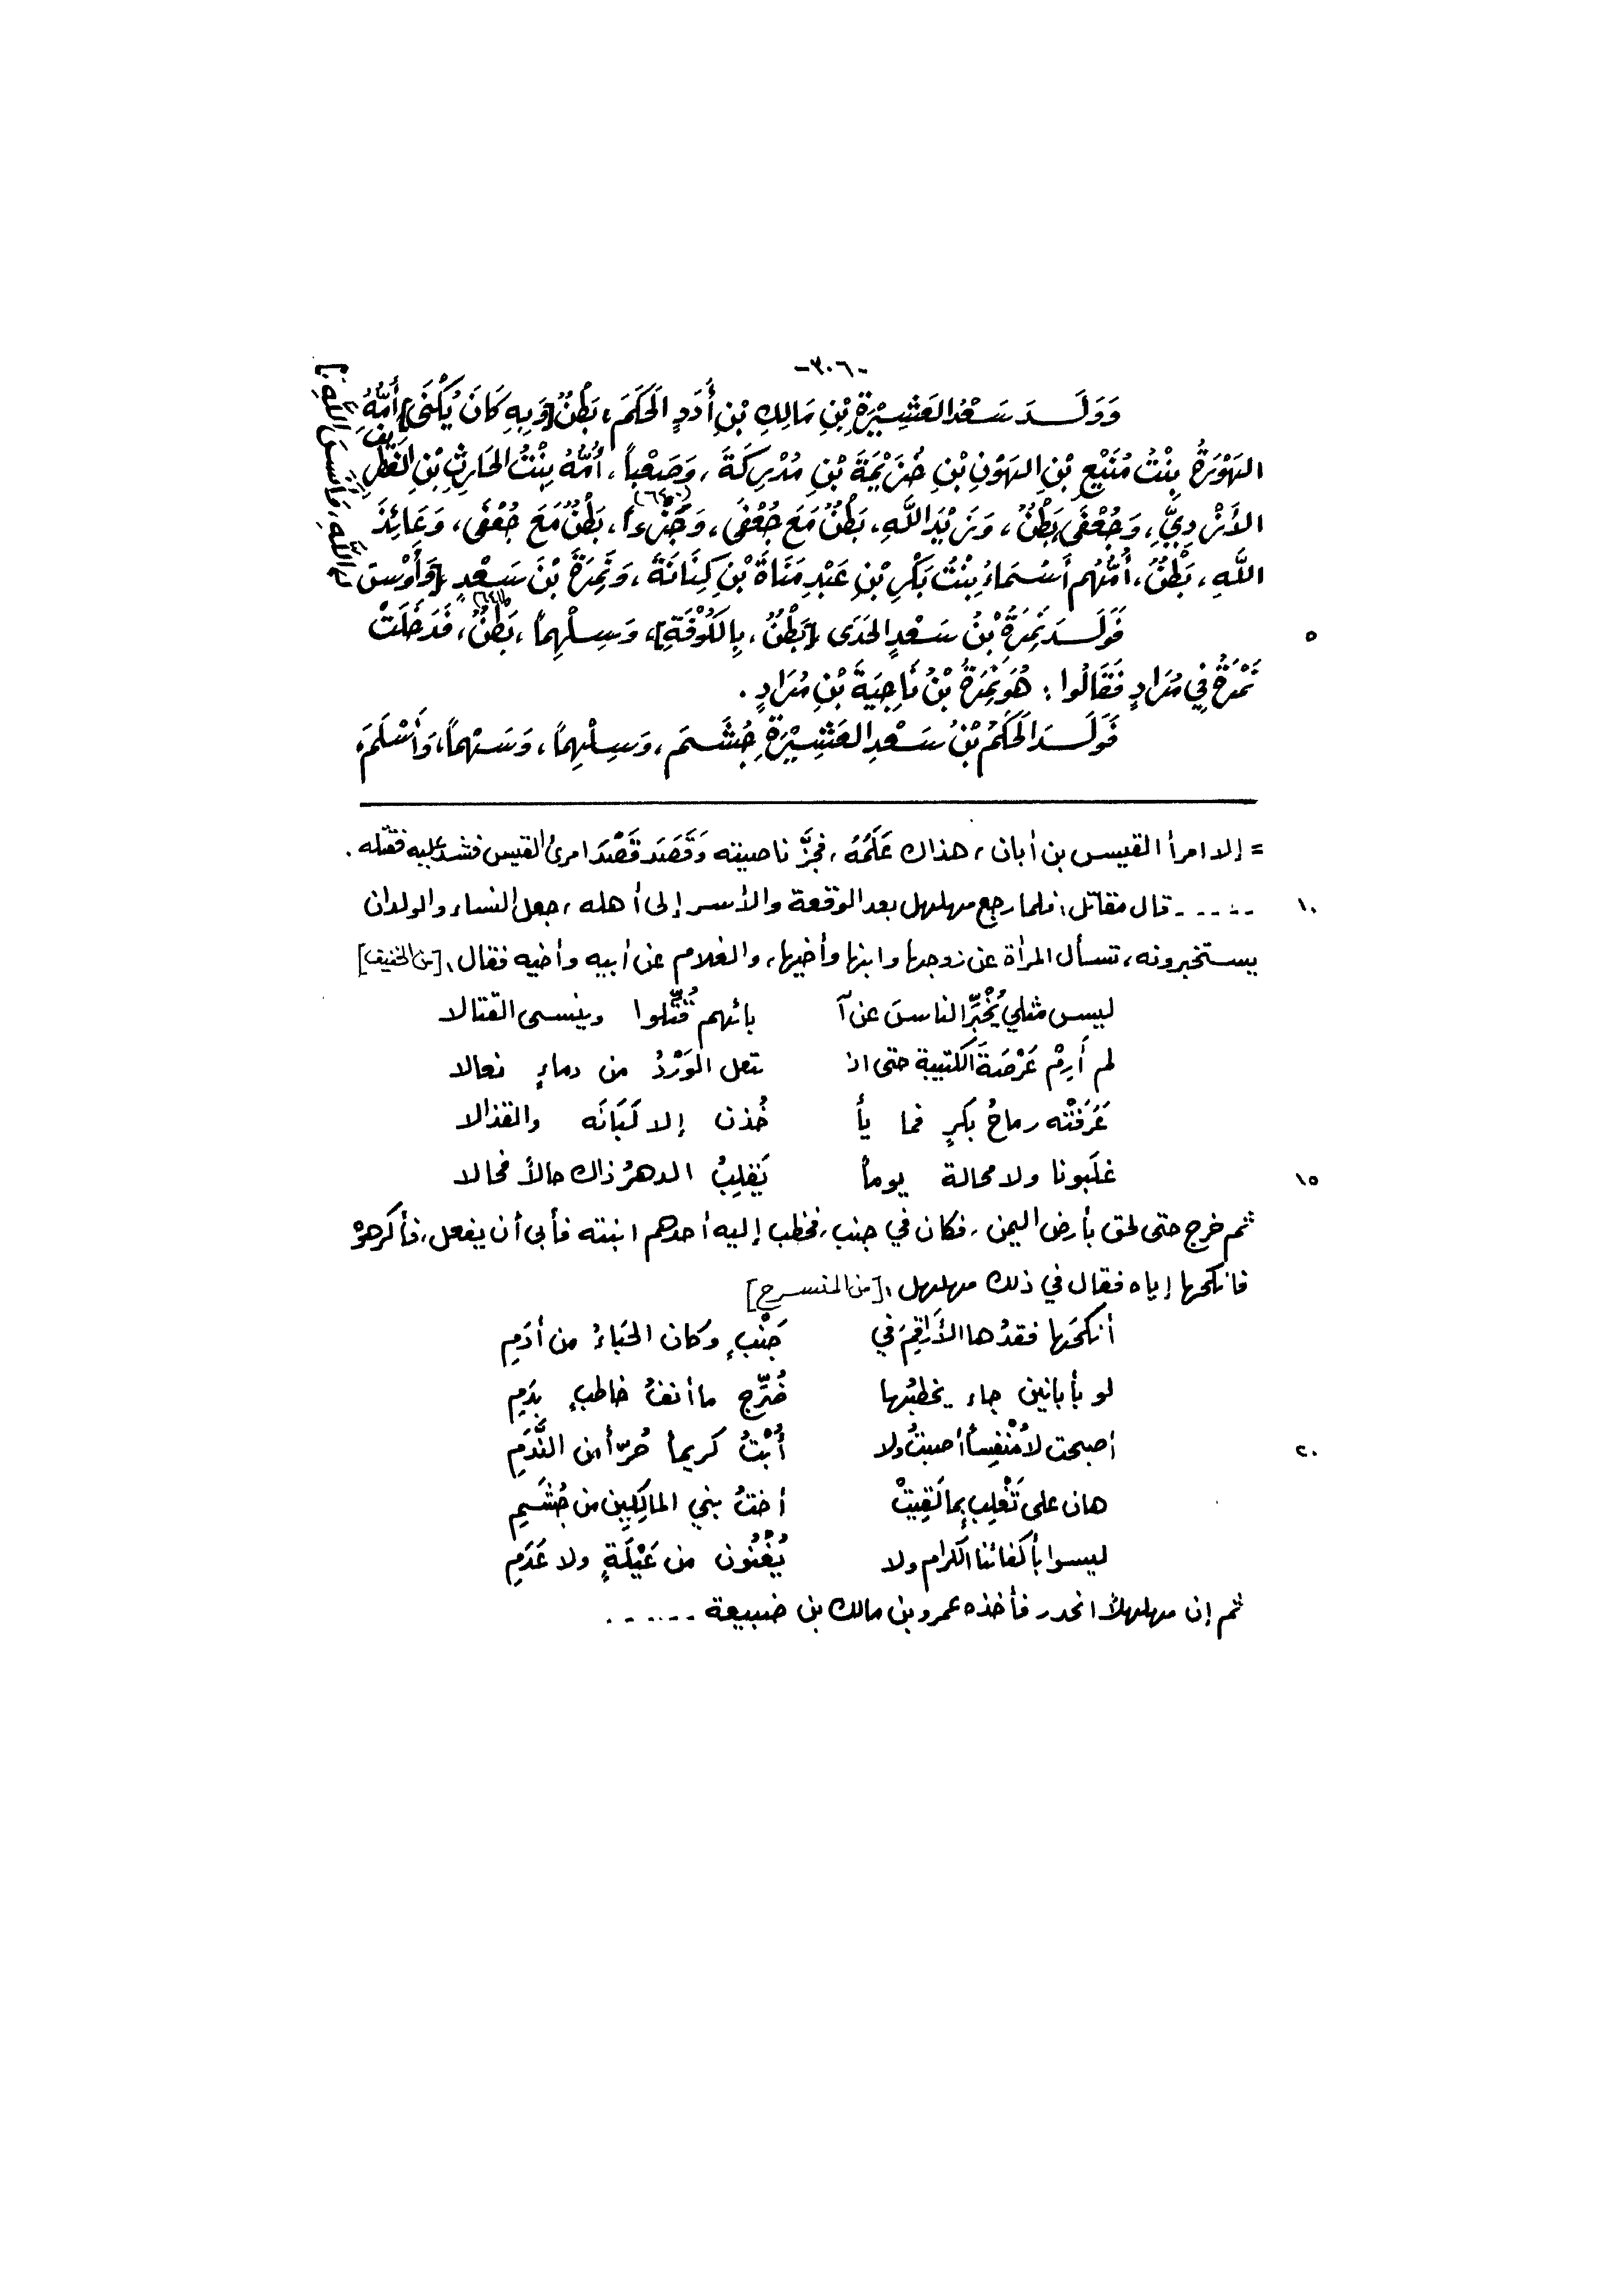 -٣٠٦-
وَوَلَـــدَ سَعْدُ العَشِيْرَةِ بْنِ مَالِكِ بْنِ أُدَدٍ الحَكَمَ، بَطْنٌ [وَبِهِ كَانَ يُكْنَى] أُمُّهُ
الهَوْرَةُ بِنْتُ مُنَبِّعِ بْنِ الهَوْنِ بْنِ خُزَيْمَةَ بْنِ مُدْرِكَةَ، وَصَعْباً، أُمُّهُ بِنْتُ الحَارِثِ بْنِ الغِطْرِيفِ
الأَزْدِيِّ، وَجُعْفَى بَطْنٌ، وَزَيْدَ اللَّهِ، بَطْنٌ مَعَ جُعْفَى، وَجَزْءاً، بَطْنٌ مَعَ جُعْفَى، وَعَائِذَ
اللَّهِ، بَطْنٌ، أُمُّهُم أَسْمَاءُ بِنْتُ بَكْرِ بْنِ عَبْدِ مَنَاةَ بْنِ كِنَانَةَ، وَنَمِرَةَ بْنَ سَعْدٍ [وَأَوْسَ
اللَّهِ، وَأَنَسَ اللَّهِ.]
٥ فَوَلَـــدَ نَمِرَةُ بْنُ سَعْدٍ الحَدَى [بَطْنٌ، بِالكُوْفَةِ]، وَسِلْهِماً، بَطْنٌ، فَدَخَلَتْ
نَمْرَةُ فِي مُرَادٍ فَقَالُوا: هُوَ نَمِرَةُ بْنُ نَاجِيَةَ بْنِ مُرَادٍ.
فَوَلَـــدَ الحَكَمُ بْنُ سَعْدِ العَشِيْرَةِ جُشَــمَ، وَسِلْهِماً، وَسَهْماً، وَأَسْلَمَ،
= إلا امرأ القيس بن أبان، هذاك عَلَمُهُ، فجزَّ ناصيته وَقَصَد قَصْدَ امرئ القيس فشد عليه فقتله.
١٠ ----- قال مقاتل: فلما رجع مهلهل بعد الوقعة والأسر إلى أهله، جعل النساء والولدان
يستخبرونه، تسأل المرأة عن زوجها وابنها وأخيها، والغلام عن أبيه وأخيه فقال: [من الخفيف]
ليس مثلي يُخْبِّر الناسَ عن آ بائهم قُتِّلوا وينسى القتالا
لم أَرِمْ عَرْصَةَ الكتيبة حتى انـ ـتعل الوَرْدُ من دماءٍ نعالا
عَرَفَتْه رماحُ بكرٍ فما يأ خُذن إلا لَبَانَه والقذالا
١٥ غلَبونا ولا محالة يوماً يَقلِبُ الدهرُ ذاك حالاً فحالا
ثم خرج حتى لحق بأرض اليمن، فكان في جنب، فخطب إليه أحدهم ابنته فأبى أن يفعل، فأكرهوْ
فانكحها إياه فقال في ذلك مهلهل: [من المنسرح]
أنكحَها فقدُها الأَرَاقِمَ في جَنْبٍ وكان الحَبَاءُ من أدَمِ
لو بأبانين جاء يخطبُها ضُرِّج ما أنفُ خاطبٍ بدَمِ
٢٠ أصبحت لا مُنْفِساً أصبتُ ولا أُبْتُ كريماً حُرّاً من النَّدَمِ
هان على تَغْلِبٍ بما لَقِيتْ أختُ بني المالكِيين من جُشَمِ
ليسوا بأكفائنا الكرام ولا يُغْنُون من عَيْلَةٍ ولا عَدَمِ
ثم إن مهلهلاً انحدر فأخذه عمرو بن مالك بن ضبيعة ------